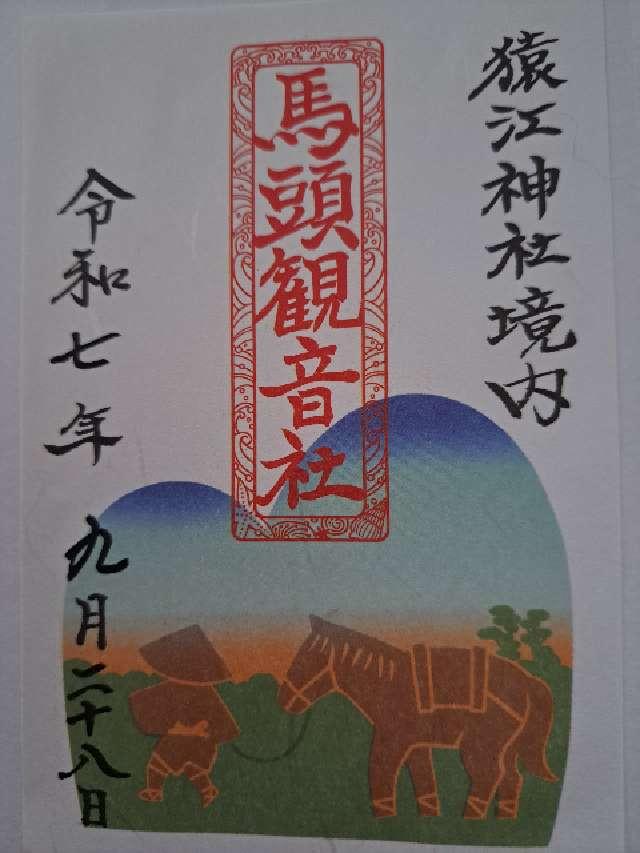 猿江神社境内
馬頭観音社
令和七年 九月二十八日